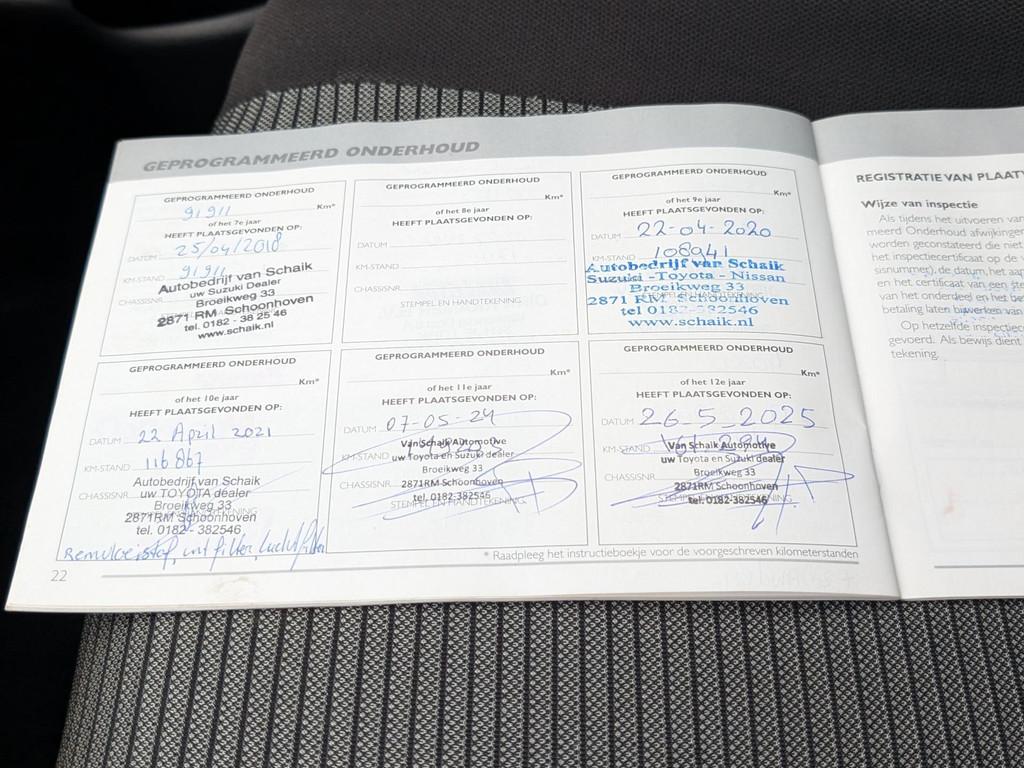 GEPROGRAMMEERD ONDERHOUD
GEPROGRAMMEERD ONDERHOUD
91911 Km*
of het 7e jaar
HEEFT PLAATSGEVONDEN OP:
DATUM 25/04/2018
KM-STAND 91911
CHASSISNR.
Autobedrijf van Schaik
uw Suzuki Dealer
Broeikweg 33
2871 RM Schoonhoven
tel. 0182 - 38 25 46
www.schaik.nl
GEPROGRAMMEERD ONDERHOUD
Km*
of het 8e jaar
HEEFT PLAATSGEVONDEN OP:
DATUM
KM-STAND
CHASSISNR.
STEMPEL EN HANDTEKENING
GEPROGRAMMEERD ONDERHOUD
Km*
of het 9e jaar
HEEFT PLAATSGEVONDEN OP:
DATUM 22-04-2020
KM-STAND 108941
Autobedrijf van Schaik
Suzuki -Toyota - Nissan
Broeikweg 33
2871 RM Schoonhoven
tel 0182-382546
www.schaik.nl
GEPROGRAMMEERD ONDERHOUD
Km*
of het 10e jaar
HEEFT PLAATSGEVONDEN OP:
DATUM 22 April 2021
KM-STAND 116867
CHASSISNR.
Autobedrijf van Schaik
uw TOYOTA dealer
Broeikweg 33
2871RM Schoonhoven
tel. 0182 - 382546
Remvloeistof, int filter, luchtfilter
GEPROGRAMMEERD ONDERHOUD
Km*
of het 11e jaar
HEEFT PLAATSGEVONDEN OP:
DATUM 07-05-24
KM-STAND
Van Schaik Automotive
uw Toyota en Suzuki dealer
Broeikweg 33
CHASSISNR. 2871RM Schoonhoven
tel. 0182-382546
STEMPEL EN HANDTEKENING
GEPROGRAMMEERD ONDERHOUD
Km*
of het 12e jaar
HEEFT PLAATSGEVONDEN OP:
DATUM 26-5-2025
KM-STAND
Van Schaik Automotive
uw Toyota en Suzuki dealer
Broeikweg 33
CHASSISNR. 2871RM Schoonhoven
tel. 0182-382546
STEMPEL EN HANDTEKENING
* Raadpleeg het instructieboekje voor de voorgeschreven kilometerstanden
22
REGISTRATIE VAN PLAATW
Wijze van inspectie
Als tijdens het uitvoeren van
meerd Onderhoud afwijkingen
worden geconstateerd die niet
het inspectiecertificaat op de
sisnummer), de datum, het aan
en het certificaat van een ste
van het onderdeel en het be
betaling laten bijwerken van
Op hetzelfde inspectiec
gevoerd. Als bewijs dient
tekening.